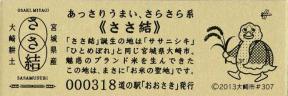 OSAKI,MIYAGI
宮城県産
ささ結
大崎耕土
SASAMUSUBI
あっさりうまい、さらさら系
《ささ結》
「ささ結」誕生の地は「ササニシキ」
「ひとめぼれ」と同じ宮城県大崎市。
魅惑のブランド米を生んできた
この地は、まさに「お米の聖地」です。
000318 道の駅「おおさき」発行
©2013大崎市#307